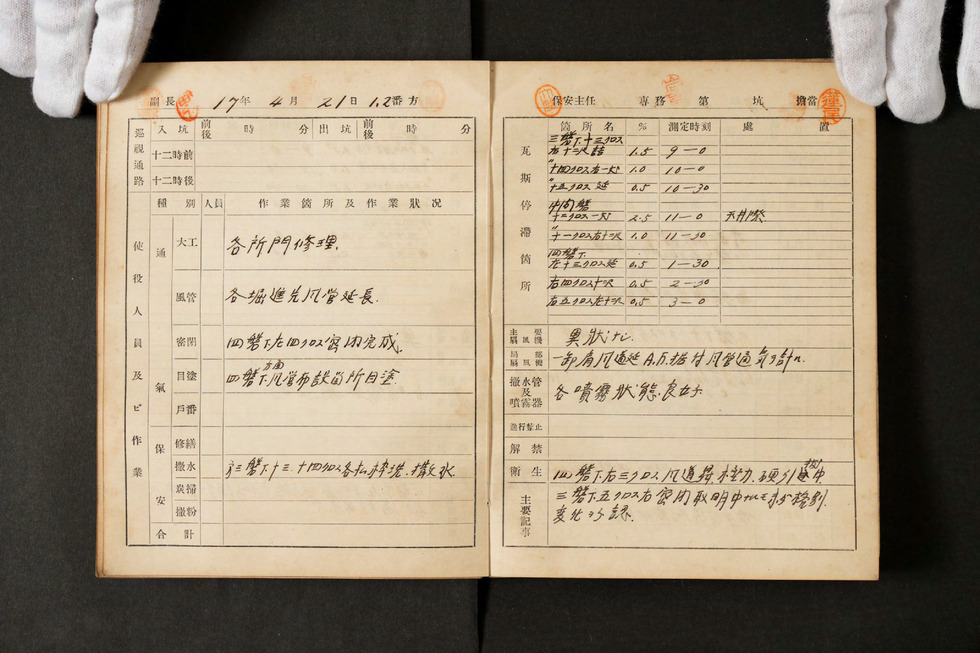 副長 17年 4月 21日 1.2番方
巡視通路 入坑 前後 時 分 出坑 前後 時 分
十二時前
十二時後
使役人員及ビ作業 種別 人員 作業箇所及作業狀况
通氣 大工 各所門修理.
風管 各掘進先風管延長.
密閉 四盤下左四クロス密閉完成.
目塗 四盤下方面風管布設箇所目塗.
戶番
保安 修繕
撒水 三盤下十三.十四クロス各払
炭掃
撒粉
合計
保安主任 専務 第 坑 擔當
瓦斯停滯箇所 箇所名 % 測定時刻 處置
三盤下十三クロス
右十三沢詰 1.5 9—0
〃
十四クロス右一沢 1.0 10—0
〃
十五クロス延 0.5 10—30
中間盤
十二クロス一沢 2.5 11—0 天井際
〃
十一クロス右十三沢 1.0 11—30
四盤下
左十三クロス延 0.5 1—30
右四クロス十沢 0.5 2—30
右五クロス左十沢 0.5 3—0
主要扇風機 異狀ナシ.
局部扇風機 一卸肩風道延A.B.据付風管通氣ヲ計ル
撒水管及噴霧器 各噴霧狀態良好.
進行禁止
解禁
衛生 四盤下右三クロス風道
主要記事 三盤下五クロス右密閉取明中ナルモ
変化ヲ認